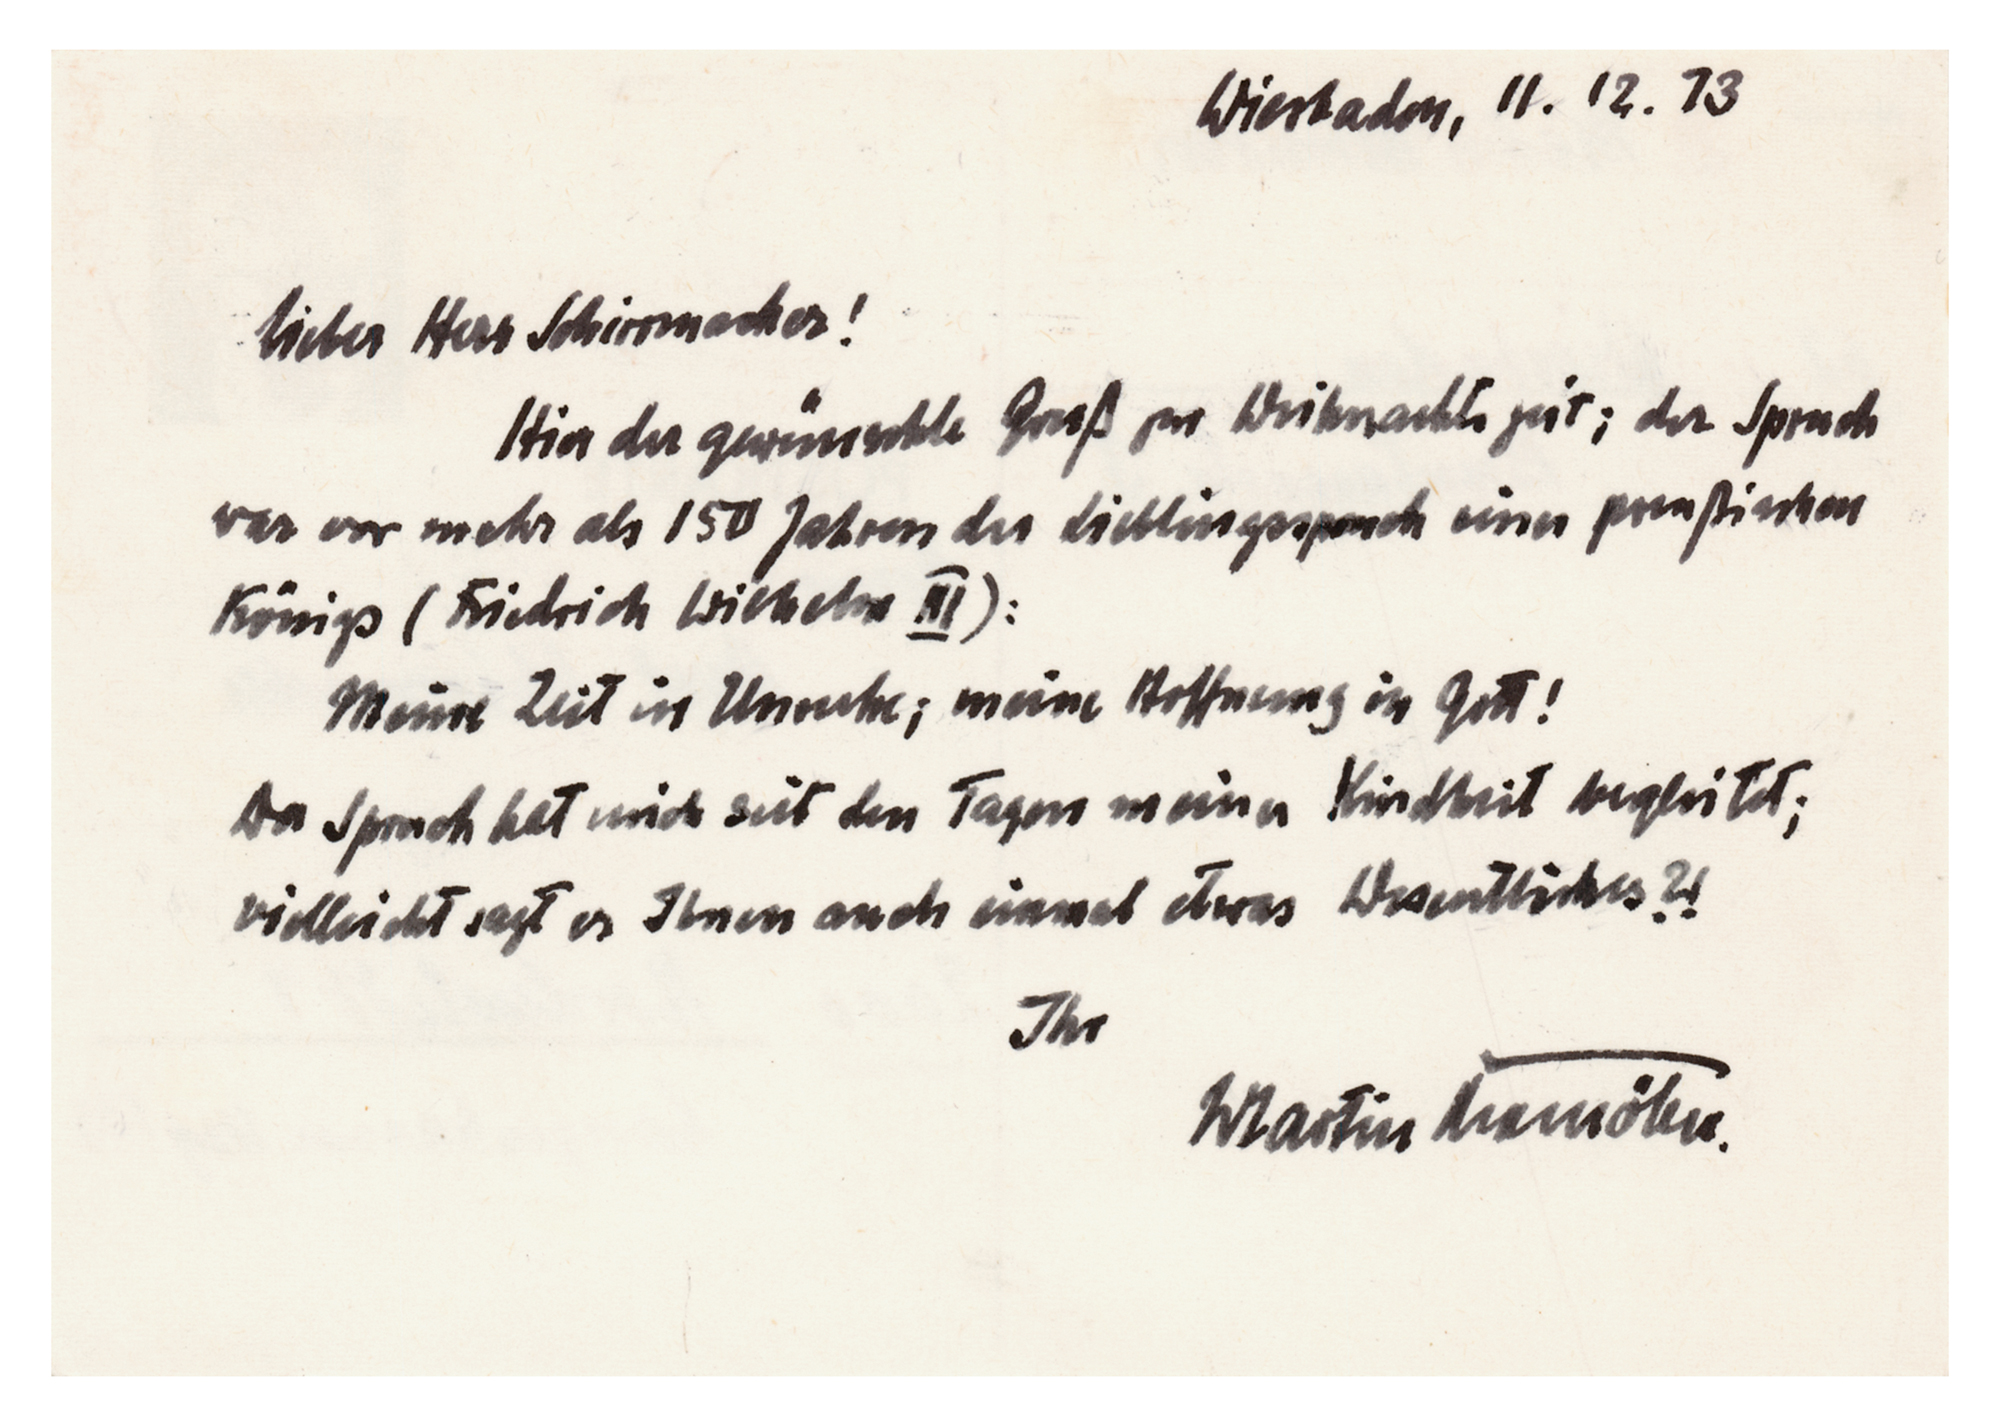 Wiesbaden, 11. 12. 73
Lieber Herr Schirrmacher!
Hier der gewünschte Gruß zur Weihnachtszeit; der Spruch
war vor mehr als 150 Jahren der Lieblingsspruch eines preußischen
Königs (Friedrich Wilhelm III):
Meine Zeit in Unruhe; meine Hoffnung in Gott!
Der Spruch hat mich seit den Tagen meiner Kindheit begleitet;
vielleicht sagt er Ihnen auch einmal etwas Wesentliches?!
Ihr
Martin Niemöller.